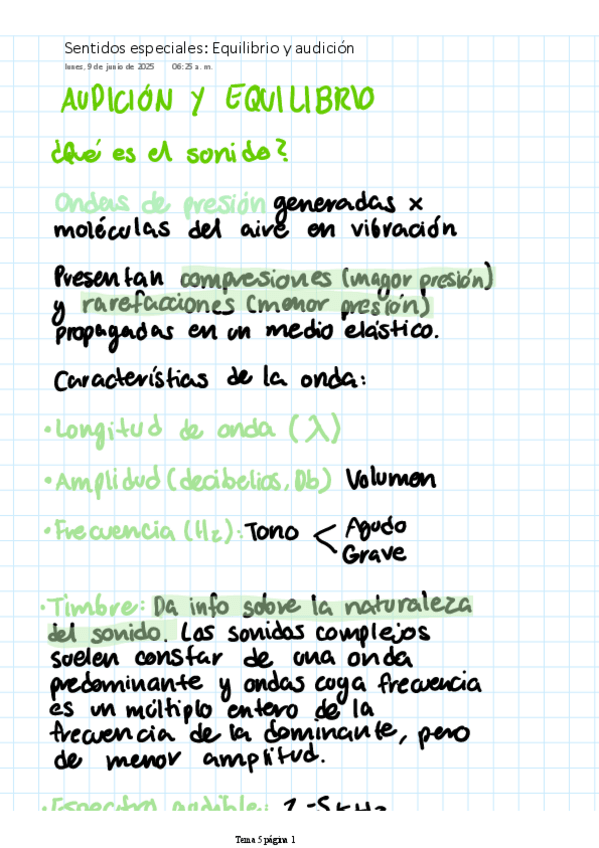 Sentidos especiales: Equilibrio y audición
lunes, 9 de junio de 2025 06:25 a. m.
AUDICIÓN Y EQUILIBRIO
¿Qué es el sonido?
Ondas de presión generadas x
moléculas del aire en vibración
Presentan compresiones (mayor presión)
y rarefacciones (menor presión)
propagadas en un medio elástico.
Característias de la onda:
• Longitud de onda (λ)
• Amplidud (decibelios, Db) Volumen
• Frecuencia (Hz): Tono < Agudo
Grave
• Timbre: Da info sobre la naturaleza
del sonido. Los sonidos complejos
suelen constar de una onda
predominante y ondas cuya frecuencia
es un múltiplo entero de la
frecuencia de la dominante, pero
de menor amplitud.
• Espectro audible: 1-5 kHz
Tema 5 página 1